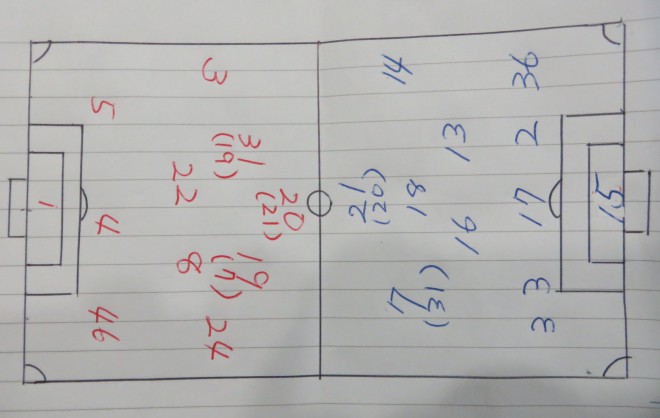 3
5
31
(19)
22
20
(21)
1
4
19
8
46
24
14
36
13
2
21
(20)
18
17
15
16
7
(31)
33